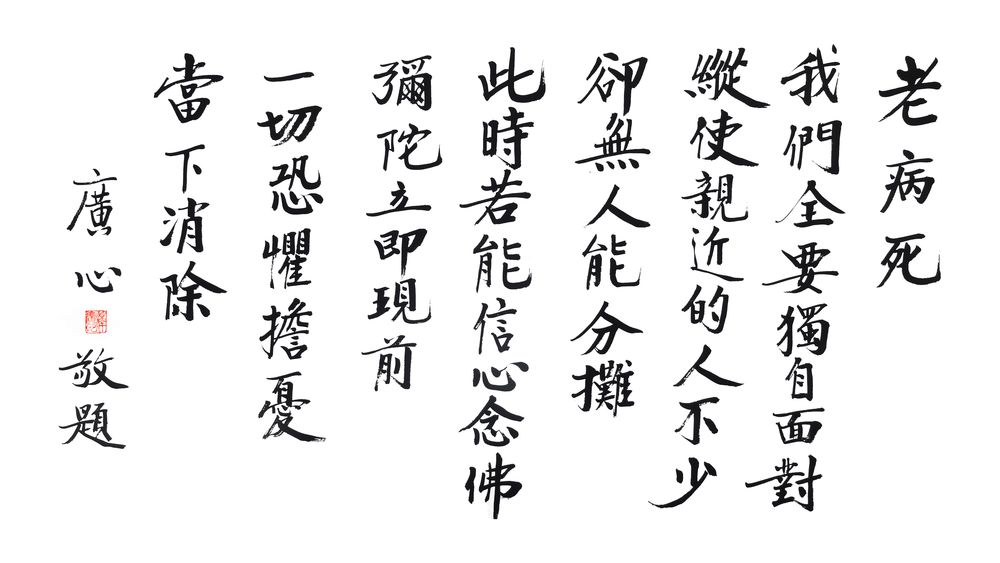 老病死
我們全要獨自面對
縱使親近的人不少
卻無人能分攤
此時若能信心念佛
彌陀立即現前
一切恐懼擔憂
當下消除
廣心敬題